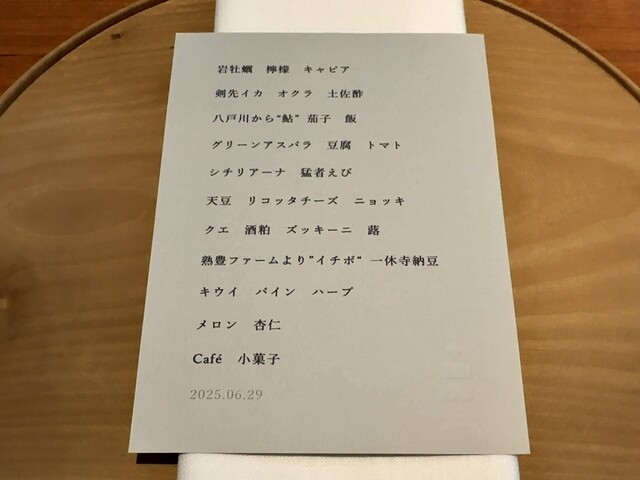 岩牡蠣　檸檬　キャビア
剣先イカ　オクラ　土佐酢
八戸川から“鮎”　茄子　飯
グリーンアスパラ　豆腐　トマト
シチリアーナ　猛者えび
天豆　リコッタチーズ　ニョッキ
クエ　酒粕　ズッキーニ　蕗
熟豊ファームより”イチボ“　一休寺納豆
キウイ　パイン　ハーブ
メロン　杏仁
Café　小菓子
2025.06.29